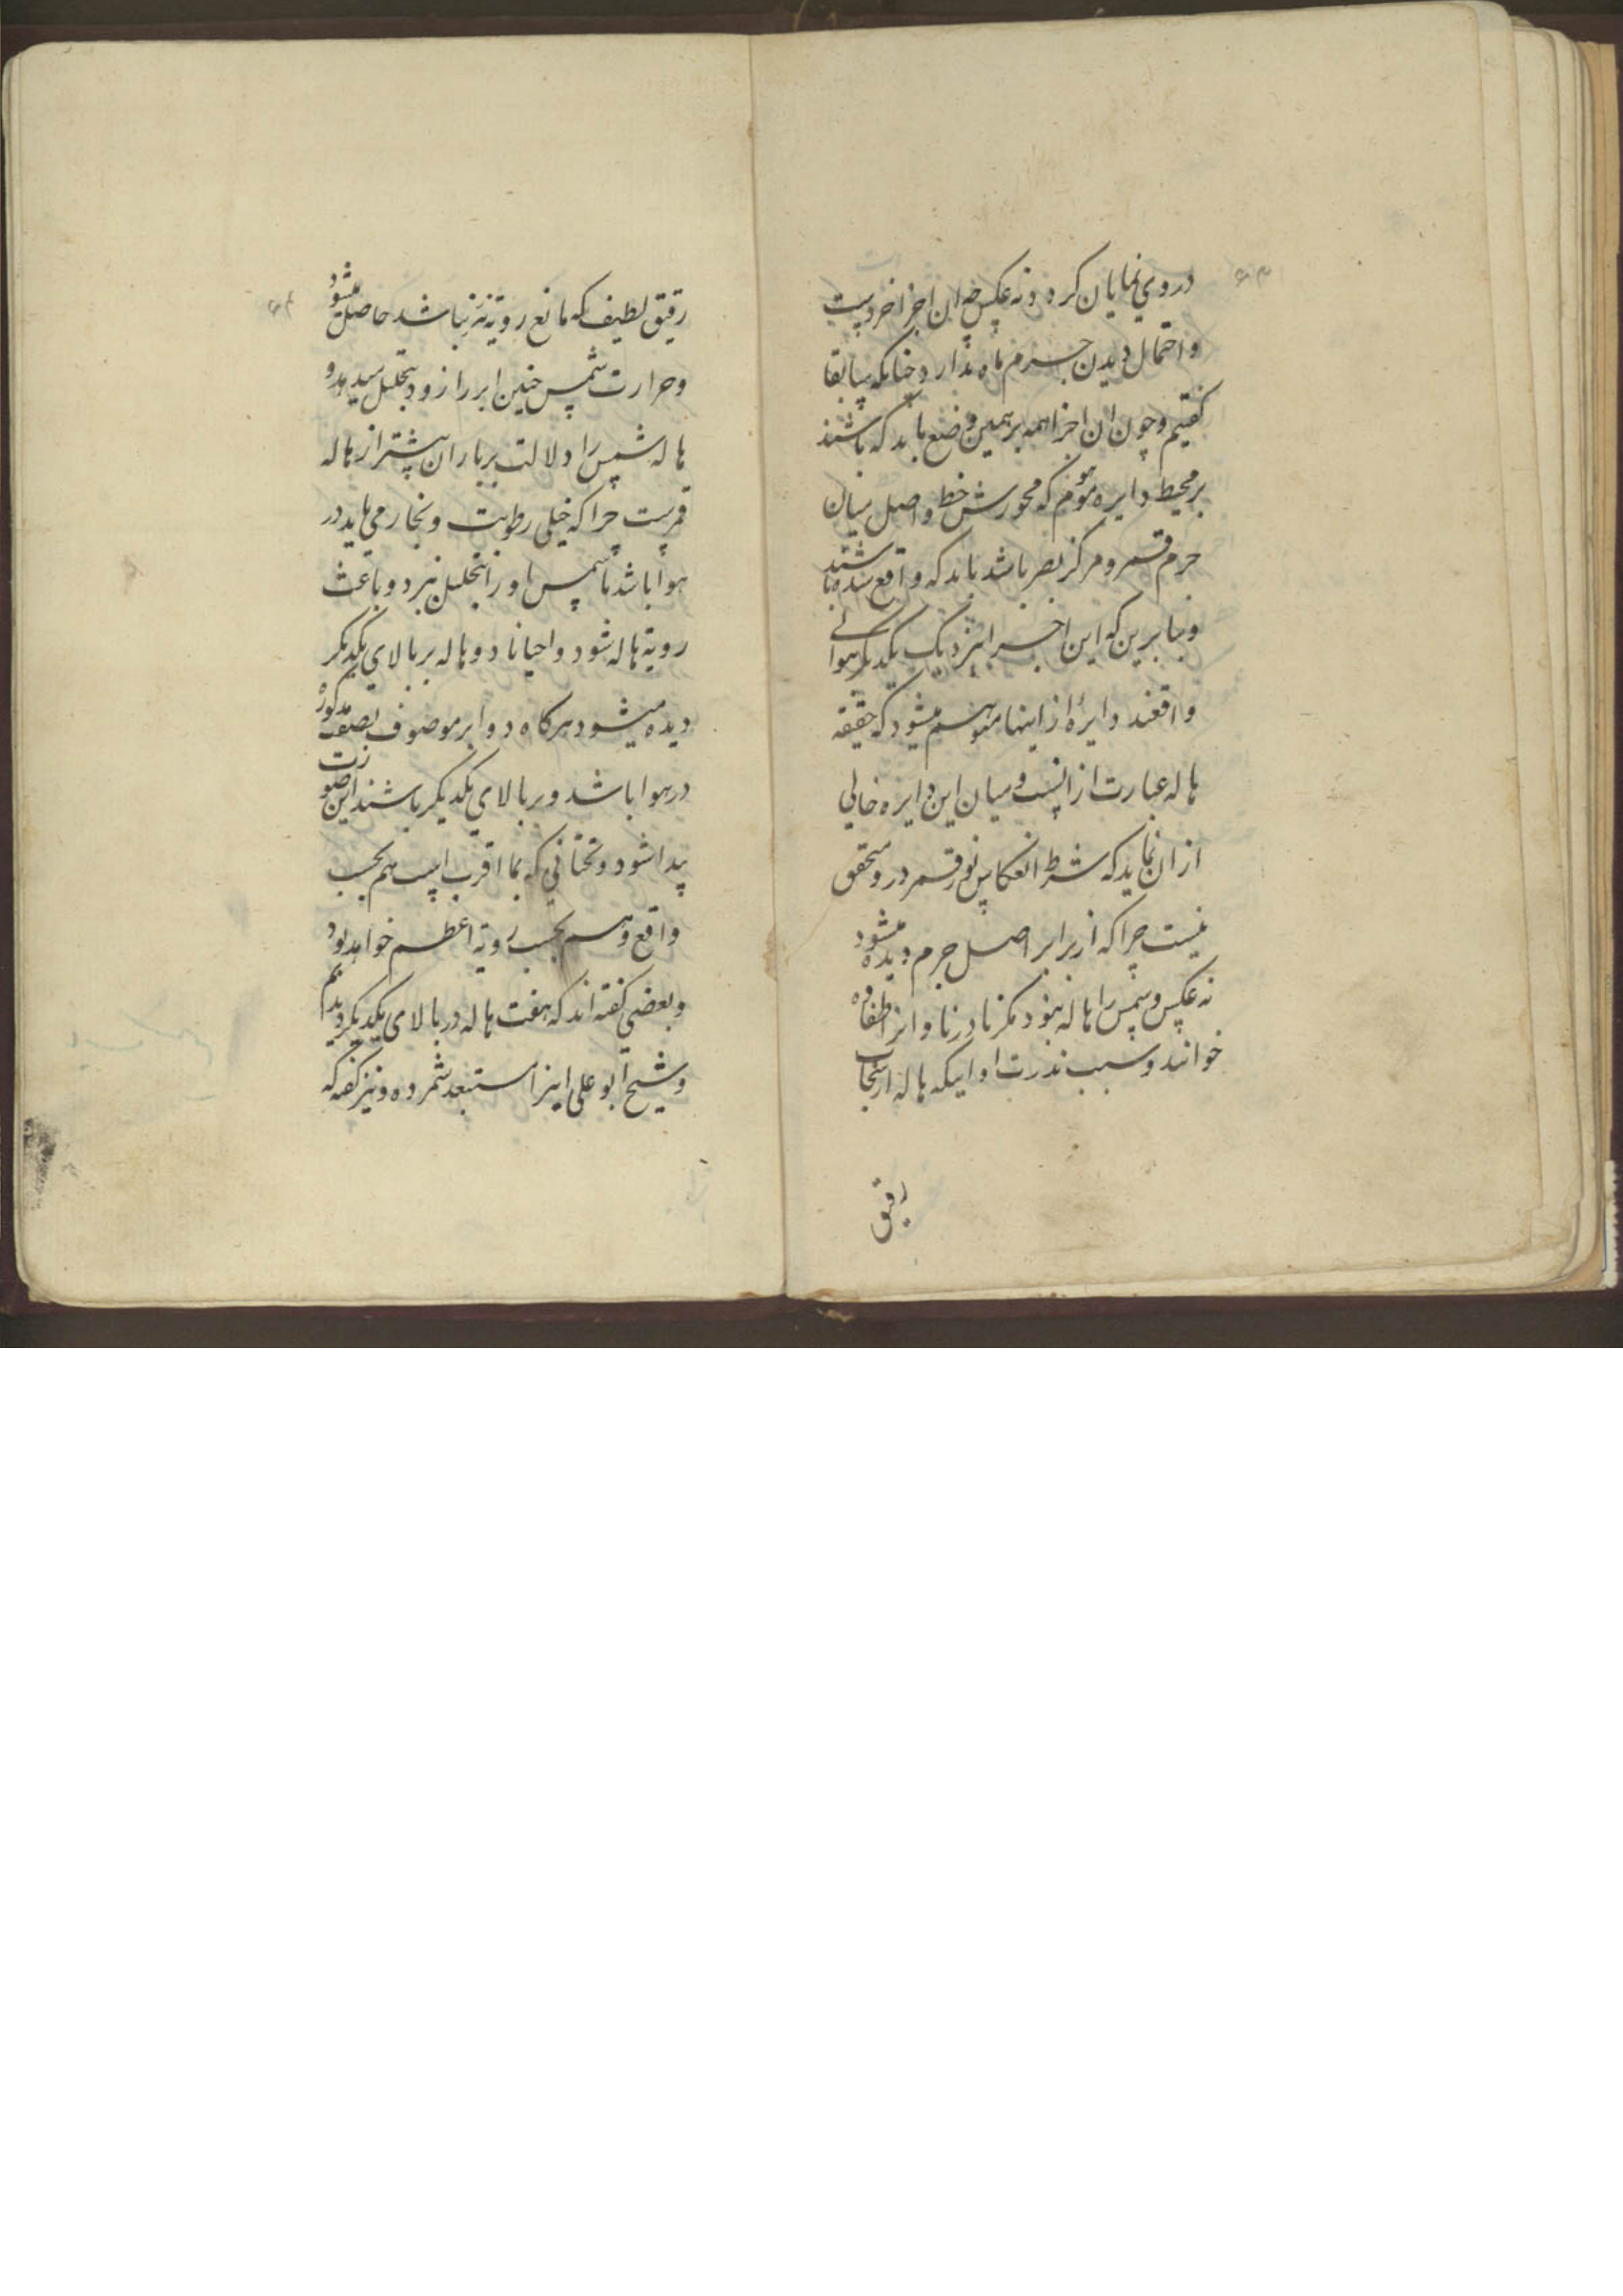 در وی نمایان کردد نه عکس چه ان اجزا خردست
و احتمال دیدن جرم ماه ندارد چنانکه سابقا
کفتیم و چون ان اجزا همه بر همین وضع باید که باشند
بر محیط دایره موهوم که محورش خط واصل میان
جرم قمر و مرکز بصر باشد باید که واقع شده باشند
و بنابرین که این اجزا نزدیک یکدیکر بهوا
واقعند دایرهٔ از اینها متوهم میشود که حقیقه
هاله عبارت از انست و میان این دایره خالی
از ان نماید که شرط انعکاس نور قمر در و متحقق
نیست چرا که از برابر اصل جرم دیده میشود
نه عکس و شمس را هاله نبود مکر نادرنا و انرا طفاوه
خوانند و سبب ندرت او اینکه هاله از سحاب
رقیق
رقیق لطیف که مانع رویة نیز نباشد حاصل میشود
و حرارت شمس چنین ابر را زود بتحلیل میدهد و
هاله شمس را دلالت بر باران بیشتر از هاله
قمرست چرا که خیلی رطوبت و بخار می باید در
هوا باشد تا شمس او را بتحلیل نبرد و باعث
رویة هاله شود و احیانا دو هاله بر بالای یکدیکر
دیده میشود هرکاه دو ابر موصوف بصفت مذکوره
در هوا باشد و بر بالای یکدیکر باشند این صورت
پیدا شود و تحتانی که بما اقرب است هم بحسب
واقع و هم بحسب رویة اعظم خواهد بود
و بعضی کفته اند که هفت هاله در بالای یکدیکر دیدهایم
و شیخ ابو علی اینرا مستبعد شمرده و نیز کفته که